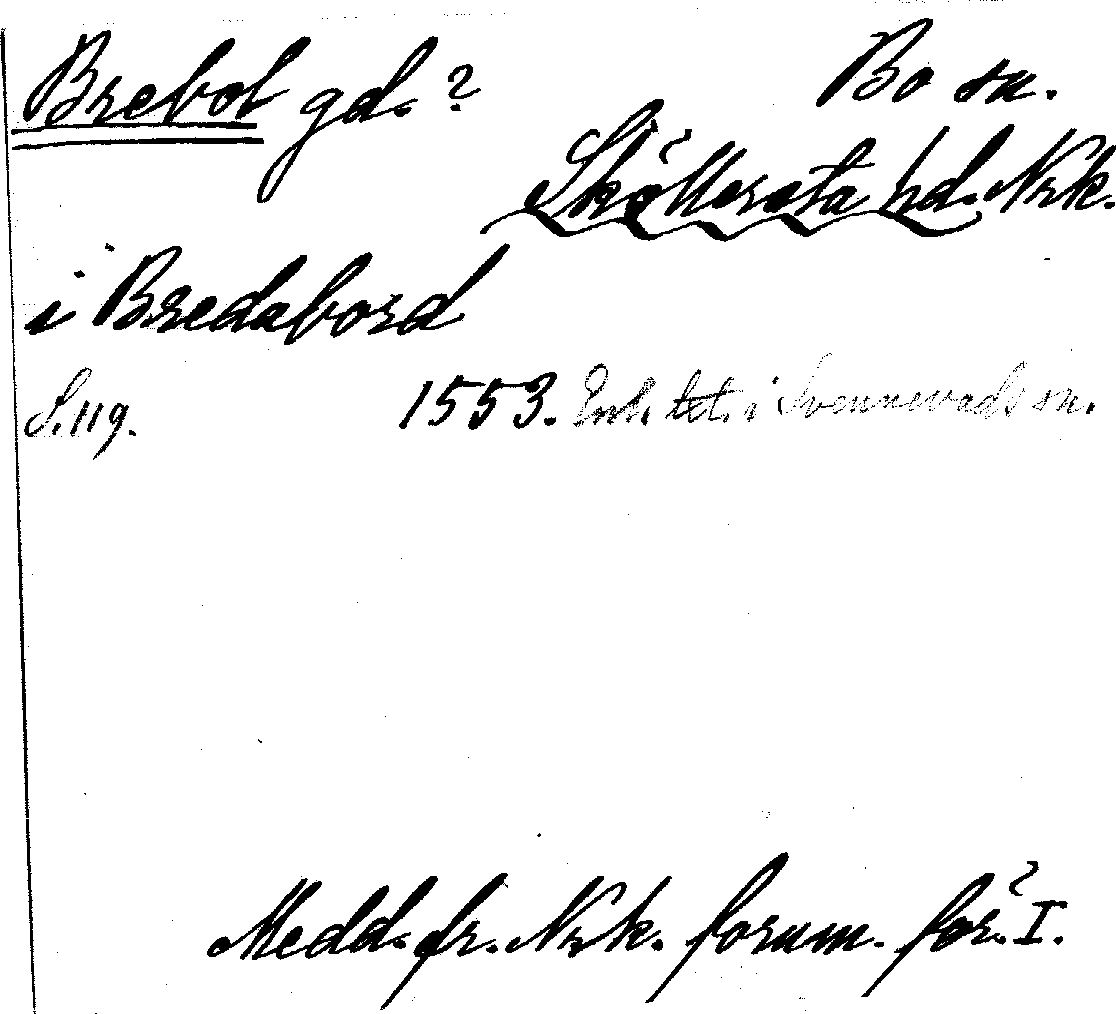 Brebol gd. ?
Bo sn.
Sköllersta hd. Nrk.
i Bredabord
S. 119.
1553. Enl. tet. i Svennevads sn.
Medd. fr. Nrk. fornm. för. I.